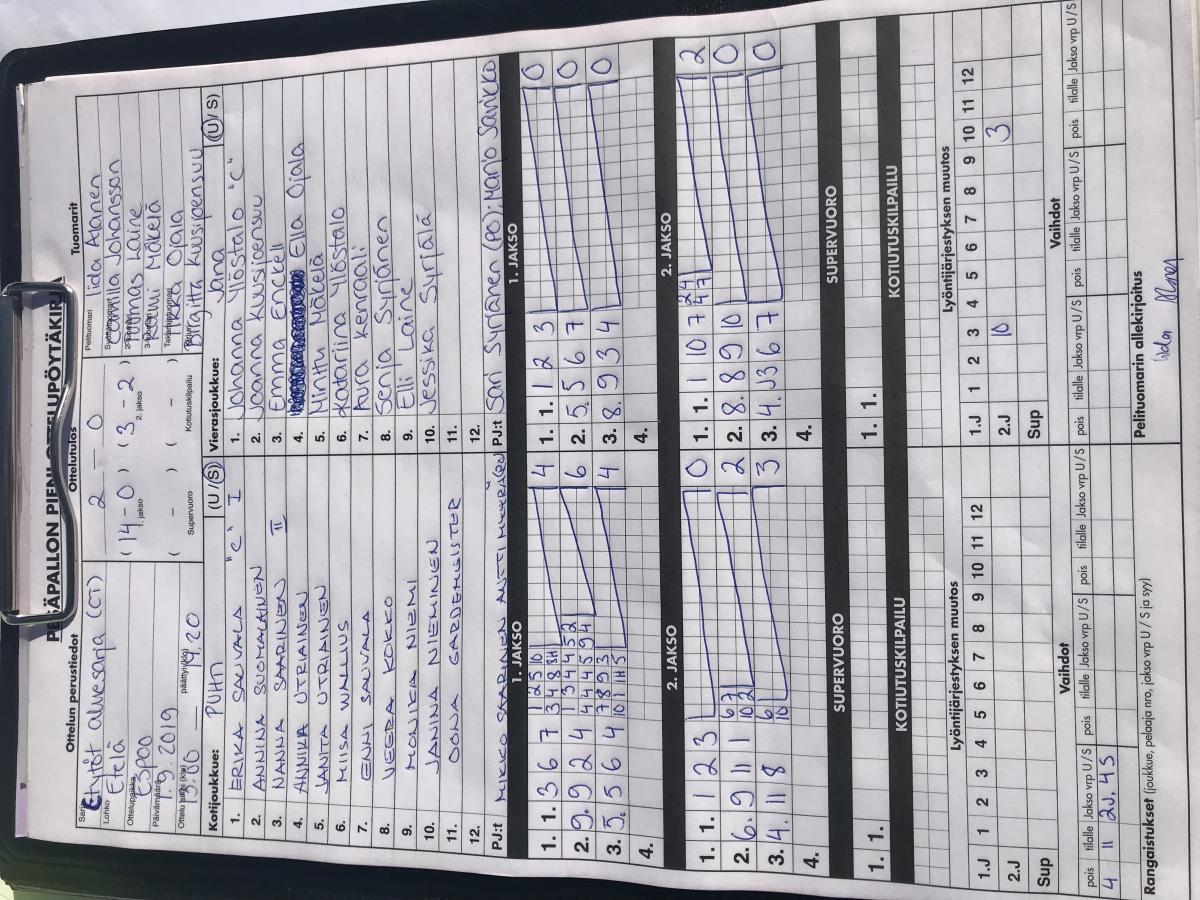 PESÄPALLON PIENI OTTELUPÖYTÄKIRJA
Ottelun perustiedot
Ottelutulos
Tuomarit
Etytöt aluesarja (CT)
Lohko Etelä
Ottelupaikka Espoo
Päivämäärä 9. 2019
Ottelu alkoi (klo) päättyi (klo) 19.20
2 – 0
( 14 – 0 ) ( 3 – 2 )
1. jakso 2. jakso
( – ) ( – )
Supervuoro Kotiutuskilpailu
Pelituomari Iida Alanen
Camilla Johansson
Tuomas Laine
Rauni Mäkelä
Ojala
Birgitta Kuusipensuu
Kotijoukkue: PUHTI (U / S)
1. ERIKA SAUVALA "C" I
2. ANNINA SUOMALAINEN
3. NANNA SAARINEN II
4. ANNIKA UTRIAINEN
5. JANITA UTRIAINEN
6. MIISA WALLIUS
7. ENNI SAUVALA
8. VEERA KOKKO
9. MONIKA NIEMI
10. JANINA NIEMINEN
11. OONA GARDEMEISTER
12.
PJ:t MIKKO SAARINEN ANTTI
Vierasjoukkue: Jana (U / S)
1. Johanna Ylöstalo "C"
2. Joanna Kuusipensuu
3. Emma Enckell
4. Ella Ojala
5. Minttu Mäkelä
6. Katariina Ylöstalo
7. Aura Kenraali
8. Senja Syrjänen
9. Elli Laine
10. Jessika Syrjälä
11.
12.
PJ:t Sari Syrjänen (PO); Marjo Savikko
1. JAKSO
1. 1. 3 6 7 3 4 8 8H 4
1 2 5 10
2. 9. 9 2 4 4 4 4 5 9 4 6
1 3 4 4 5 2
3. 5. 5 6 4 10 11 1H 5 4
7 8 9 3
4.
1. JAKSO
1. 1. 1 2 3 0
2. 5. 5 6 7 0
3. 8. 9 3 4 0
4.
2. JAKSO
1. 1. 1 2 3 0
2. 6. 9 11 1 10 2 2
6 7
3. 4. 11 8 10 3
6
4.
2. JAKSO
1. 1. 1 10 7 4 7 2
2 4
2. 8. 8 9 10 0
3. 4. J3 6 7 0
4.
SUPERVUORO
1. 1.
KOTIUTUSKILPAILU
SUPERVUORO
1. 1.
KOTIUTUSKILPAILU
Lyöntijärjestyksen muutos
1 2 3 4 5 6 7 8 9 10 11 12
1.J
2.J
Sup
Lyöntijärjestyksen muutos
1 2 3 4 5 6 7 8 9 10 11 12
1.J
2.J 10 3
Sup
Vaihdot
pois tilalle Jakso vrp U / S pois tilalle Jakso vrp U / S pois tilalle Jakso vrp U / S
4 11 2J. 4S
Vaihdot
pois tilalle Jakso vrp U / S pois tilalle Jakso vrp U / S pois tilalle Jakso vrp U / S
Rangaistukset (joukkue, pelaaja nro, jakso vrp U / S ja syy)
Pelituomarin allekirjoitus
Iida Alanen